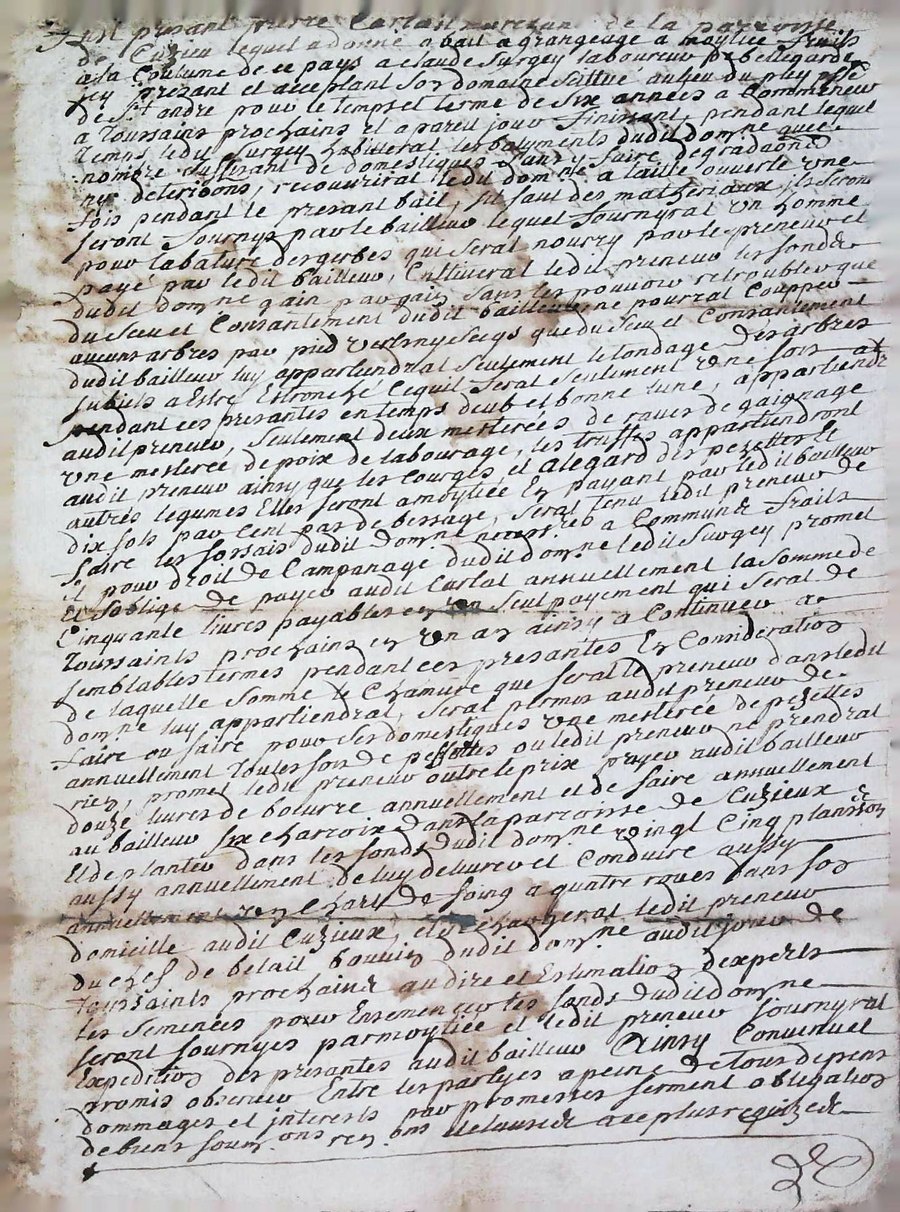 Fust presant pierre Carlat de la parroisse
de Cuzieu lequel a donné a bail a grangeage a moytiee fruits
a la Coutume de ce pays a Claude Surgey laboureur de bellegarde
icy presant et acceptant son domaine scittué au lieu du pley psse
de St andre pour le temps et terme de six années a Commencer
a Toussains prochains et a pareil jour finissant, pendant lequel
temps ledit Surgey habiterat les batyments dudit domne avec
nombre suffisant de domestiques sans y faire degradaons
ny deterioons, recouvrirat ledit domne a taille ouverte une
fois pendant le presant bail, sil faut des matheriaux ils seront
seront fournys par le bailleur lequel fournyrat un homme
pour la bature des gerbes qui serat nourry par le preneur et
payé par ledit bailleur, Cultiverat ledit preneur les fonds
dudit domne gain par gain sans les pouvoir retroubler que
du sceu et Consantement dudit bailleur ne pourrat Coupper
aucuns arbres par pied vertz ny secqs que du sceu et Consantement
dudit bailleur luy appartiendrat seulement le tondage des arbres
subiets a Estre Estronché Cequil serat seulement une fois
pendant ces presantes en temps deub et bonne lune, appartiendr
audit preneur, seulement deux mesterées de raves de gaignage
une mesterée de poix de labourage, les truffes appartiendront
audit preneur ainsy que les Courges et alegard des pezettes et
autres legumes Elles seront amoytiée En payant par ledit bailleur
dix sols par Cent pas de bessage, serat tenu ledit preneur de
faire les fossais dudit domne necessres a Communs fraits
et pour droit de Campanage dudit domne ledit Surgey promet
et soblige de payer audit Carlat annuellement la somme de
Cinquante livres payables en un seul payement qui serat de
Toussaints prochains en un an ainsy a Continuer a
semblables termes pendant ces presantes En Consideration
de laquelle somme le Chanvre que serat le preneur dans ledit
domne luy appartiendrat, serat permis audit preneur de
faire ou faire pour ses domestiques une mesterée de pezettes
annuellement Toutes fois de pezettes ou ledit preneur ne prendrat
rien, promet ledit preneur outre le prix payer audit bailleur
douze livres de beurre annuellement et de faire annuellement
au bailleur six charroix dans la parroisse de Cuzieux
Et de planter dans les fonds dudit domne vingt Cinq plansson
aussy annuellement, de luy delivrer et Conduire aussy
annuellement un Chart de foing a quatre roues dans son
domicille audit Cuzieux, et se chargerat ledit preneur
du chef de betail bouvin dudit domne audit jour de
Toussaints prochains au dire et Estimation dexperts
les semences pour Ensemencer les fonds dudit domne
seront fournyes par moytiée et ledit preneur fournyrat
Expedition des presantes audit bailleur Ainsy Convenuet
promis observer Entre les partyes a peine de tous depens
dommages et interests par promesses serment obligation
de biens soumons ren ons et clauses a ce plus requizes